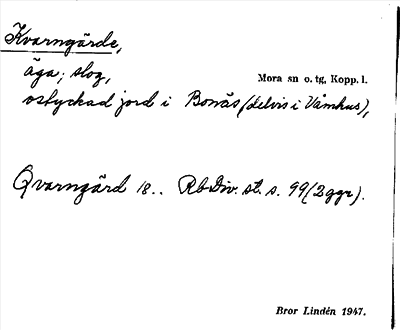 Kvarngärde,
äga; slog, Mora sn o. tg, Kopp. l.
ostyckad jord i Bonäs (delvis i Våmhus),
Qvarngärd 18.. RbDiv. st. s. 99 (2 ggr).
Bror Lindén 1947.